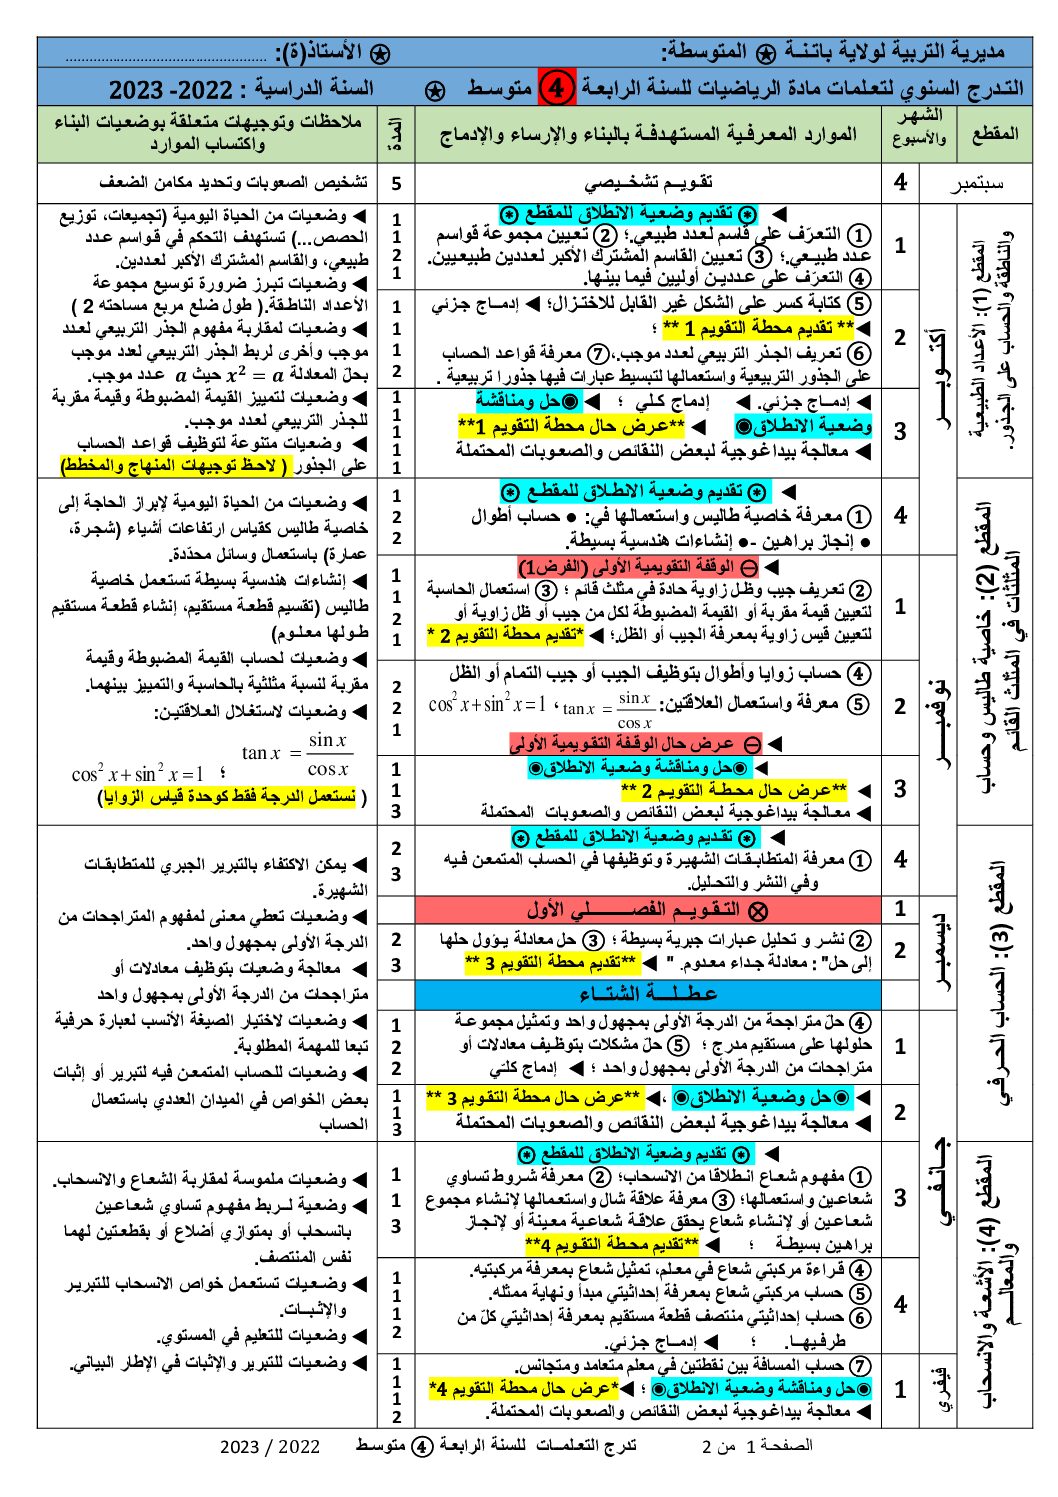 مديرية التربية لولاية باتنة ✪ المتوسطة: ✪ الأستاذ(ة): ..................................................
التدرج السنوي لتعلمات مادة الرياضيات للسنة الرابعة ④ متوسط ✪ السنة الدراسية : 2022- 2023
المقطع
الشهر
والأسبوع
الموارد المعرفية المستهدفة بالبناء والإرساء والإدماج
المدة
ملاحظات وتوجيهات متعلقة بوضعيات البناء
واكتساب الموارد
سبتمبر
4
تقويم تشخيصي
5
تشخيص الصعوبات وتحديد مكامن الضعف
المقطع (1): الأعداد الطبيعية
والناطقة والحساب على الجذور.
أكتوبر
1
◄ ⊛ تقديم وضعية الانطلاق للمقطع ⊛
① التعرّف على قاسم لعدد طبيعي.؛ ② تعيين مجموعة قواسم
عدد طبيعي.؛ ③ تعيين القاسم المشترك الأكبر لعددين طبيعيين.
④ التعرّف على عددين أوليين فيما بينها.
1
1
2
1
2
⑤ كتابة كسر على الشكل غير القابل للاختزال؛ ◄ إدماج جزئي
◄** تقديم محطة التقويم 1 ** ؛
⑥ تعريف الجذر التربيعي لعدد موجب.، ⑦ معرفة قواعد الحساب
على الجذور التربيعية واستعمالها لتبسيط عبارات فيها جذورا تربيعية .
1
1
1
2
3
◄ إدماج جزئي. ◄ إدماج كلي ؛ ◄ ◉حل ومناقشة
وضعية الانطلاق◉ ◄ **عرض حال محطة التقويم 1**
◄ معالجة بيداغوجية لبعض النقائص والصعوبات المحتملة
1
1
1
1
1
◄ وضعيات من الحياة اليومية (تجميعات، توزيع
الحصص...) تستهدف التحكم في قواسم عدد
طبيعي، والقاسم المشترك الأكبر لعددين.
◄ وضعيات تبرز ضرورة توسيع مجموعة
الأعداد الناطقة.( طول ضلع مربع مساحته 2 )
◄ وضعيات لمقاربة مفهوم الجذر التربيعي لعدد
موجب وأخرى لربط الجذر التربيعي لعدد موجب
بحلّ المعادلة x² = a حيث a عدد موجب.
◄ وضعيات لتمييز القيمة المضبوطة وقيمة مقربة
للجذر التربيعي لعدد موجب.
◄ وضعيات متنوعة لتوظيف قواعد الحساب
على الجذور ( لاحظ توجيهات المنهاج والمخطط)
المقطع (2): خاصية طاليس وحساب
المثلثات في المثلث القائم
4
◄ ⊛ تقديم وضعية الانطلاق للمقطع ⊛
① معرفة خاصية طاليس واستعمالها في: ● حساب أطوال
● إنجاز براهين -● إنشاءات هندسية بسيطة.
1
2
2
نوفمبر
1
◄ ⊖ الوقفة التقويمية الأولى (الفرض1)
② تعريف جيب وظل زاوية حادة في مثلث قائم ؛ ③ استعمال الحاسبة
لتعيين قيمة مقربة أو القيمة المضبوطة لكل من جيب أو ظل زاوية أو
لتعيين قيس زاوية بمعرفة الجيب أو الظل.؛ ◄ *تقديم محطة التقويم 2 *
1
1
2
1
2
④ حساب زوايا وأطوال بتوظيف الجيب أو جيب التمام أو الظل
⑤ معرفة واستعمال العلاقتين: tan x = sin x / cos x ، cos² x + sin² x = 1
◄ ⊖ عرض حال الوقفة التقويمية الأولى
2
2
1
3
◄ ◉حل ومناقشة وضعية الانطلاق◉
◄ **عرض حال محطة التقويم 2 **
◄ معالجة بيداغوجية لبعض النقائص والصعوبات المحتملة
1
1
3
◄ وضعيات من الحياة اليومية لإبراز الحاجة إلى
خاصية طاليس كقياس ارتفاعات أشياء (شجرة،
عمارة) باستعمال وسائل محدّدة.
◄ إنشاءات هندسية بسيطة تستعمل خاصية
طاليس (تقسيم قطعة مستقيم، إنشاء قطعة مستقيم
طولها معلوم)
◄ وضعيات لحساب القيمة المضبوطة وقيمة
مقربة لنسبة مثلثية بالحاسبة والتمييز بينهما.
◄ وضعيات لاستغلال العلاقتين:
tan x = sin x / cos x ؛ cos² x + sin² x = 1
( نستعمل الدرجة فقط كوحدة قياس الزوايا)
المقطع (3): الحساب الحرفي
4
◄ ⊛ تقديم وضعية الانطلاق للمقطع ⊛
① معرفة المتطابقات الشهيرة وتوظيفها في الحساب المتمعن فيه
وفي النشر والتحليل.
2
3
ديسمبر
1
⊗ التقويم الفصلي الأول
2
② نشر و تحليل عبارات جبرية بسيطة ؛ ③ حل معادلة يؤول حلها
إلى حل" : معادلة جداء معدوم. " ◄ **تقديم محطة التقويم 3 **
2
3
عطلة الشتاء
جانفي
1
④ حلّ متراجحة من الدرجة الأولى بمجهول واحد وتمثيل مجموعة
حلولها على مستقيم مدرج ؛ ⑤ حلّ مشكلات بتوظيف معادلات أو
متراجحات من الدرجة الأولى بمجهول واحد ؛ ◄ إدماج كلي
1
2
2
2
◄ ◉حل وضعية الانطلاق◉ ،◄ **عرض حال محطة التقويم 3 **
◄ معالجة بيداغوجية لبعض النقائص والصعوبات المحتملة
1
1
3
◄ يمكن الاكتفاء بالتبرير الجبري للمتطابقات
الشهيرة.
◄ وضعيات تعطي معنى لمفهوم المتراجحات من
الدرجة الأولى بمجهول واحد.
◄ معالجة وضعيات بتوظيف معادلات أو
متراجحات من الدرجة الأولى بمجهول واحد
◄ وضعيات لاختيار الصيغة الأنسب لعبارة حرفية
تبعا للمهمة المطلوبة.
◄ وضعيات للحساب المتمعن فيه لتبرير أو إثبات
بعض الخواص في الميدان العددي باستعمال
الحساب
المقطع (4): الأشعة والانسحاب
والمعالم
3
◄ ⊛ تقديم وضعية الانطلاق للمقطع ⊛
① مفهوم شعاع انطلاقا من الانسحاب؛ ② معرفة شروط تساوي
شعاعين واستعمالها؛ ③ معرفة علاقة شال واستعمالها لإنشاء مجموع
شعاعين أو لإنشاء شعاع يحقق علاقة شعاعية معينة أو لإنجاز
براهين بسيطة ؛ ◄ **تقديم محطة التقويم 4**
1
1
3
4
④ قراءة مركبتي شعاع في معلم، تمثيل شعاع بمعرفة مركبتيه.
⑤ حساب مركبتي شعاع بمعرفة إحداثيتي مبدأ ونهاية ممثله.
⑥ حساب إحداثيتي منتصف قطعة مستقيم بمعرفة إحداثيتي كلّ من
طرفيها. ؛ ◄ إدماج جزئي.
1
1
1
2
فيفري
1
⑦ حساب المسافة بين نقطتين في معلم متعامد ومتجانس.
◉حل ومناقشة وضعية الانطلاق◉ ؛ ◄*عرض حال محطة التقويم 4*
◄ معالجة بيداغوجية لبعض النقائص والصعوبات المحتملة.
1
1
1
2
◄ وضعيات ملموسة لمقاربة الشعاع والانسحاب.
◄ وضعية لربط مفهوم تساوي شعاعين
بانسحاب أو بمتوازي أضلاع أو بقطعتين لهما
نفس المنتصف.
◄ وضعيات تستعمل خواص الانسحاب للتبرير
والإثبات.
◄ وضعيات للتعليم في المستوي.
◄ وضعيات للتبرير والإثبات في الإطار البياني.
الصفحة 1 من 2 تدرج التعلمات للسنة الرابعة ④ متوسط 2022 / 2023